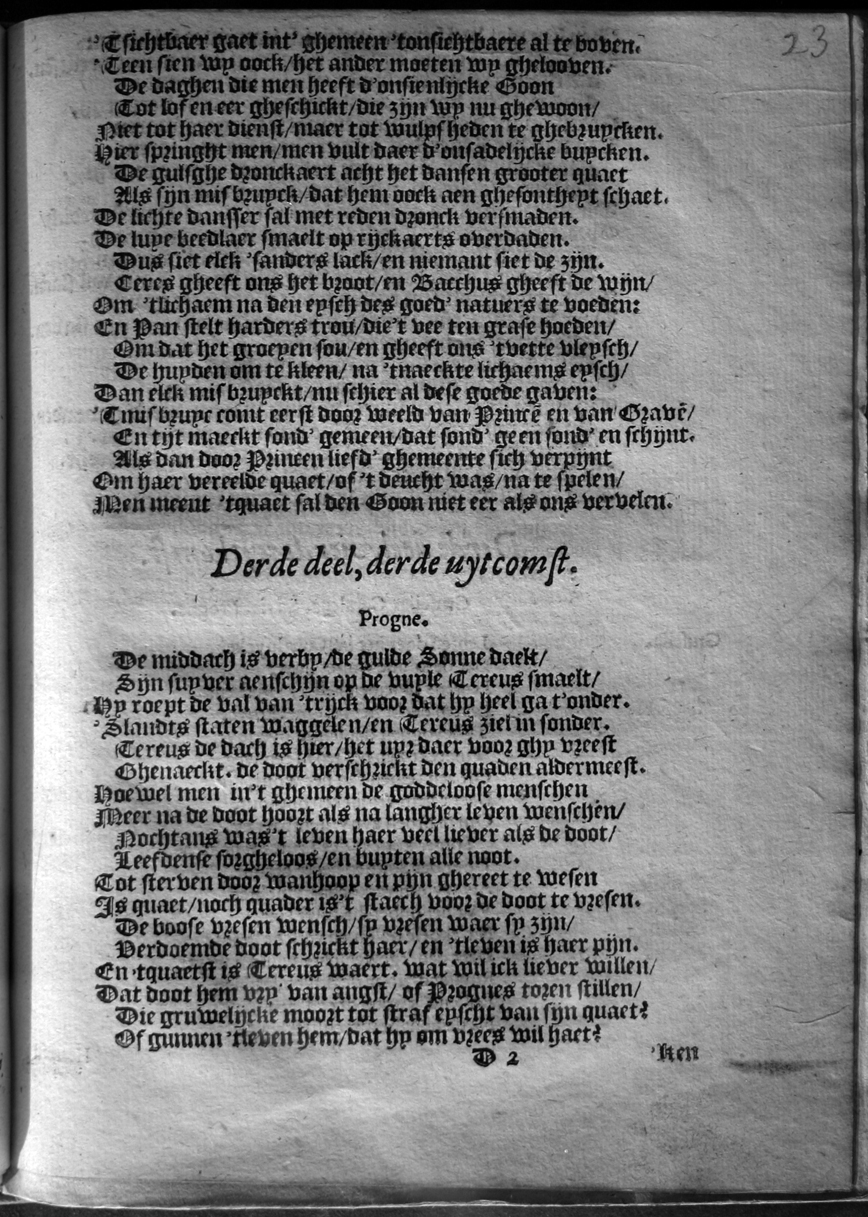 23
'Tsichtbaer gaet int' ghemeen 'tonsichtbaere al te boven.
'Teen sien wy oock/het ander moeten wy ghelooven.
De daghen die men heeft d'onsienlijcke Goon
Tot lof en eer gheschickt/die zijn wy nu ghewoon/
Niet tot haer dienst/maer tot wulpsheden te ghebruycken.
Hier springht men/men vult daer d'onsadelijcke buycken.
De gulsghe dronckaert acht het dansen grooter quaet
Als sijn misbruyck/dat hem oock aen ghesontheyt schaet.
De lichte dansser sal met reden dronck versmaden.
De luye beedlaer smaelt op rijckaerts overdaden.
Dus siet elck 'sanders lack/en niemant siet de zijn.
Ceres gheeft ons het broot/en Bacchus gheeft de wijn/
Om 'tlichaem na den eysch des goed' natuers te voeden:
En Pan stelt harders trou/die't vee ten grase hoeden/
Om dat het groeyen sou/en gheeft ons 'tvette vleysch/
De huyden om te kleen/ na 'tnaeckte lichaems eysch/
Dan elck misbruyckt/nu schier al dese goede gaven:
'Tmisbruyc comt eerst door weeld van Princē en van Gravē/
En tijt maeckt sond' gemeen/dat sond' geen sond' en schijnt.
Als dan door Princen liefd' ghemeente sich verpijnt
Om haer vereelde quaet/of 't deucht was/na te spelen/
Men meent 'tquaet sal den Goon niet eer als ons vervelen.
Derde deel, derde uytcomst.
Progne.
De middach is verby/de gulde Sonne daelt/
Sijn suyver aenschijn op de vuyle Tereus smaelt/
Hy roept de val van 'trijck voor dat hy heel ga t'onder.
'Slandts staten waggelen/en Tereus ziel in sonder.
Tereus de dach is hier/het uyr daer voor ghy vreest
Ghenaeckt. de doot verschrickt den quaden aldermeest.
Hoewel men in't ghemeen de goddeloose menschen
Meer na de doot hoort als na langher leven wenschen/
Nochtans was't leven haer veel liever als de doot/
Leefdense sorgheloos/en buyten alle noot.
Tot sterven door wanhoop en pijn ghereet te wesen
Is quaet/noch quader is't staech voor de doot te vresen.
De boose vresen wensch/sy vresen waer sy zijn/
Verdoemde doot schrickt haer/en 'tleven is haer pijn.
En 'tquaetst is Tereus waert. wat wil ick liever willen/
Dat doot hem vry' van angst/ of Prognes toren stillen/
Die gruwelijcke moort tot straf eyscht van sijn quaet?
Of gunnen 'tleven hem/dat hy om vrees wil haet?
D 2
'Ken